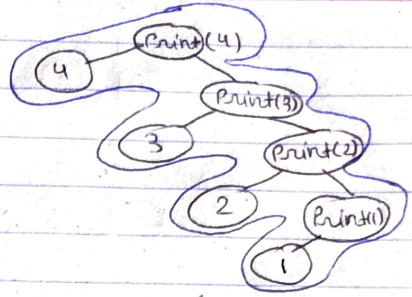 Print(4)
4
Print(3)
3
Print(2)
2
Print(1)
1